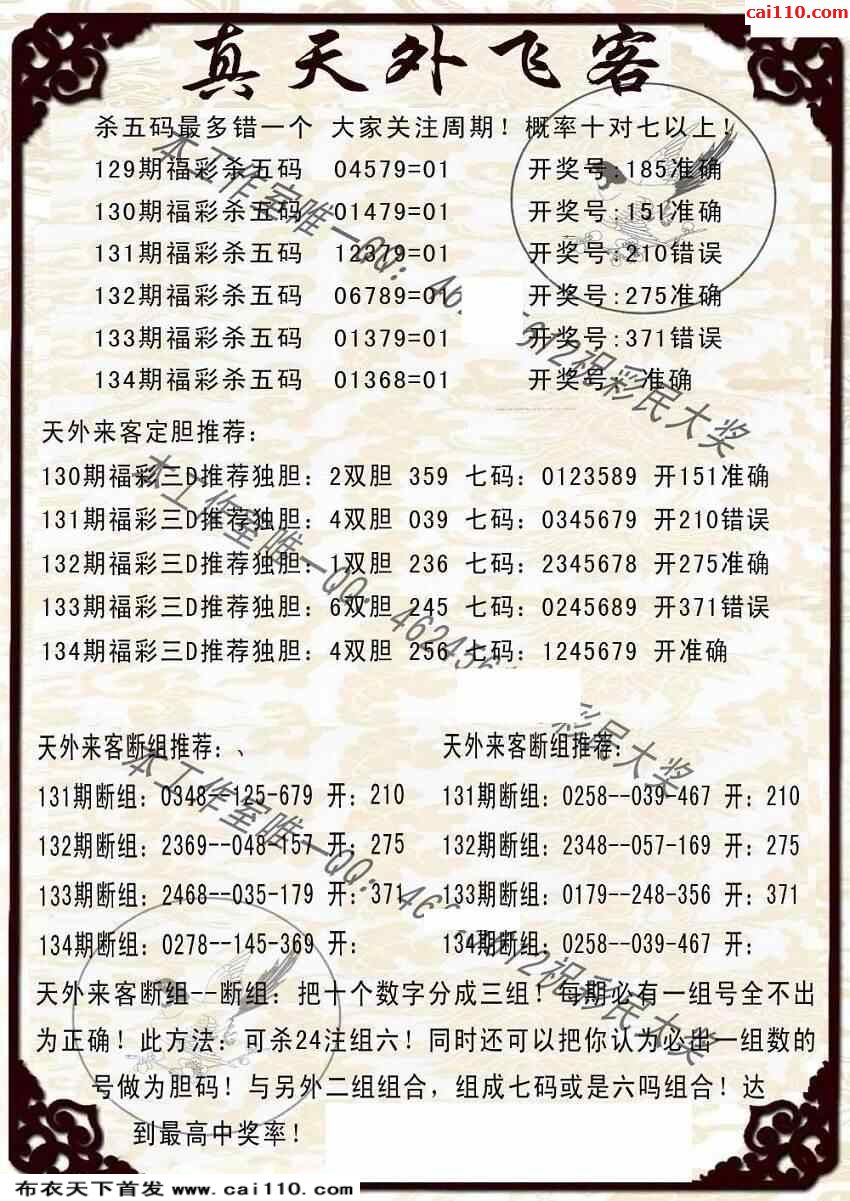 cai110.com
真天外飞客
杀五码最多错一个 大家关注周期！概率十对七以上！
129期福彩杀五码 04579=01 开奖号:185准确
130期福彩杀五码 01479=01 开奖号:151准确
131期福彩杀五码 12379=01 开奖号:210错误
132期福彩杀五码 06789=01 开奖号:275准确
133期福彩杀五码 01379=01 开奖号:371错误
134期福彩杀五码 01368=01 开奖号: 准确
天外来客定胆推荐：
130期福彩三D推荐独胆：2双胆 359 七码：0123589 开151准确
131期福彩三D推荐独胆：4双胆 039 七码：0345679 开210错误
132期福彩三D推荐独胆：1双胆 236 七码：2345678 开275准确
133期福彩三D推荐独胆：6双胆 245 七码：0245689 开371错误
134期福彩三D推荐独胆：4双胆 256 七码：1245679 开准确
天外来客断组推荐：、
131期断组：0348--125-679 开：210
132期断组：2369--048-157 开：275
133期断组：2468--035-179 开：371
134期断组：0278--145-369 开：
天外来客断组推荐：
131期断组：0258--039-467 开：210
132期断组：2348--057-169 开：275
133期断组：0179--248-356 开：371
134期断组：0258--039-467 开：
天外来客断组--断组：把十个数字分成三组！每期必有一组号全不出
为正确！此方法：可杀24注组六！同时还可以把你认为必出一组数的
号做为胆码！与另外二组组合，组成七码或是六吗组合！达
到最高中奖率！
本工作室唯一QQ：46
912祝彩民大奖
本工作室唯一QQ：462456
彩民大奖
本工作室唯一QQ：46
912祝彩民大奖
布衣天下首发 www.cai110.com